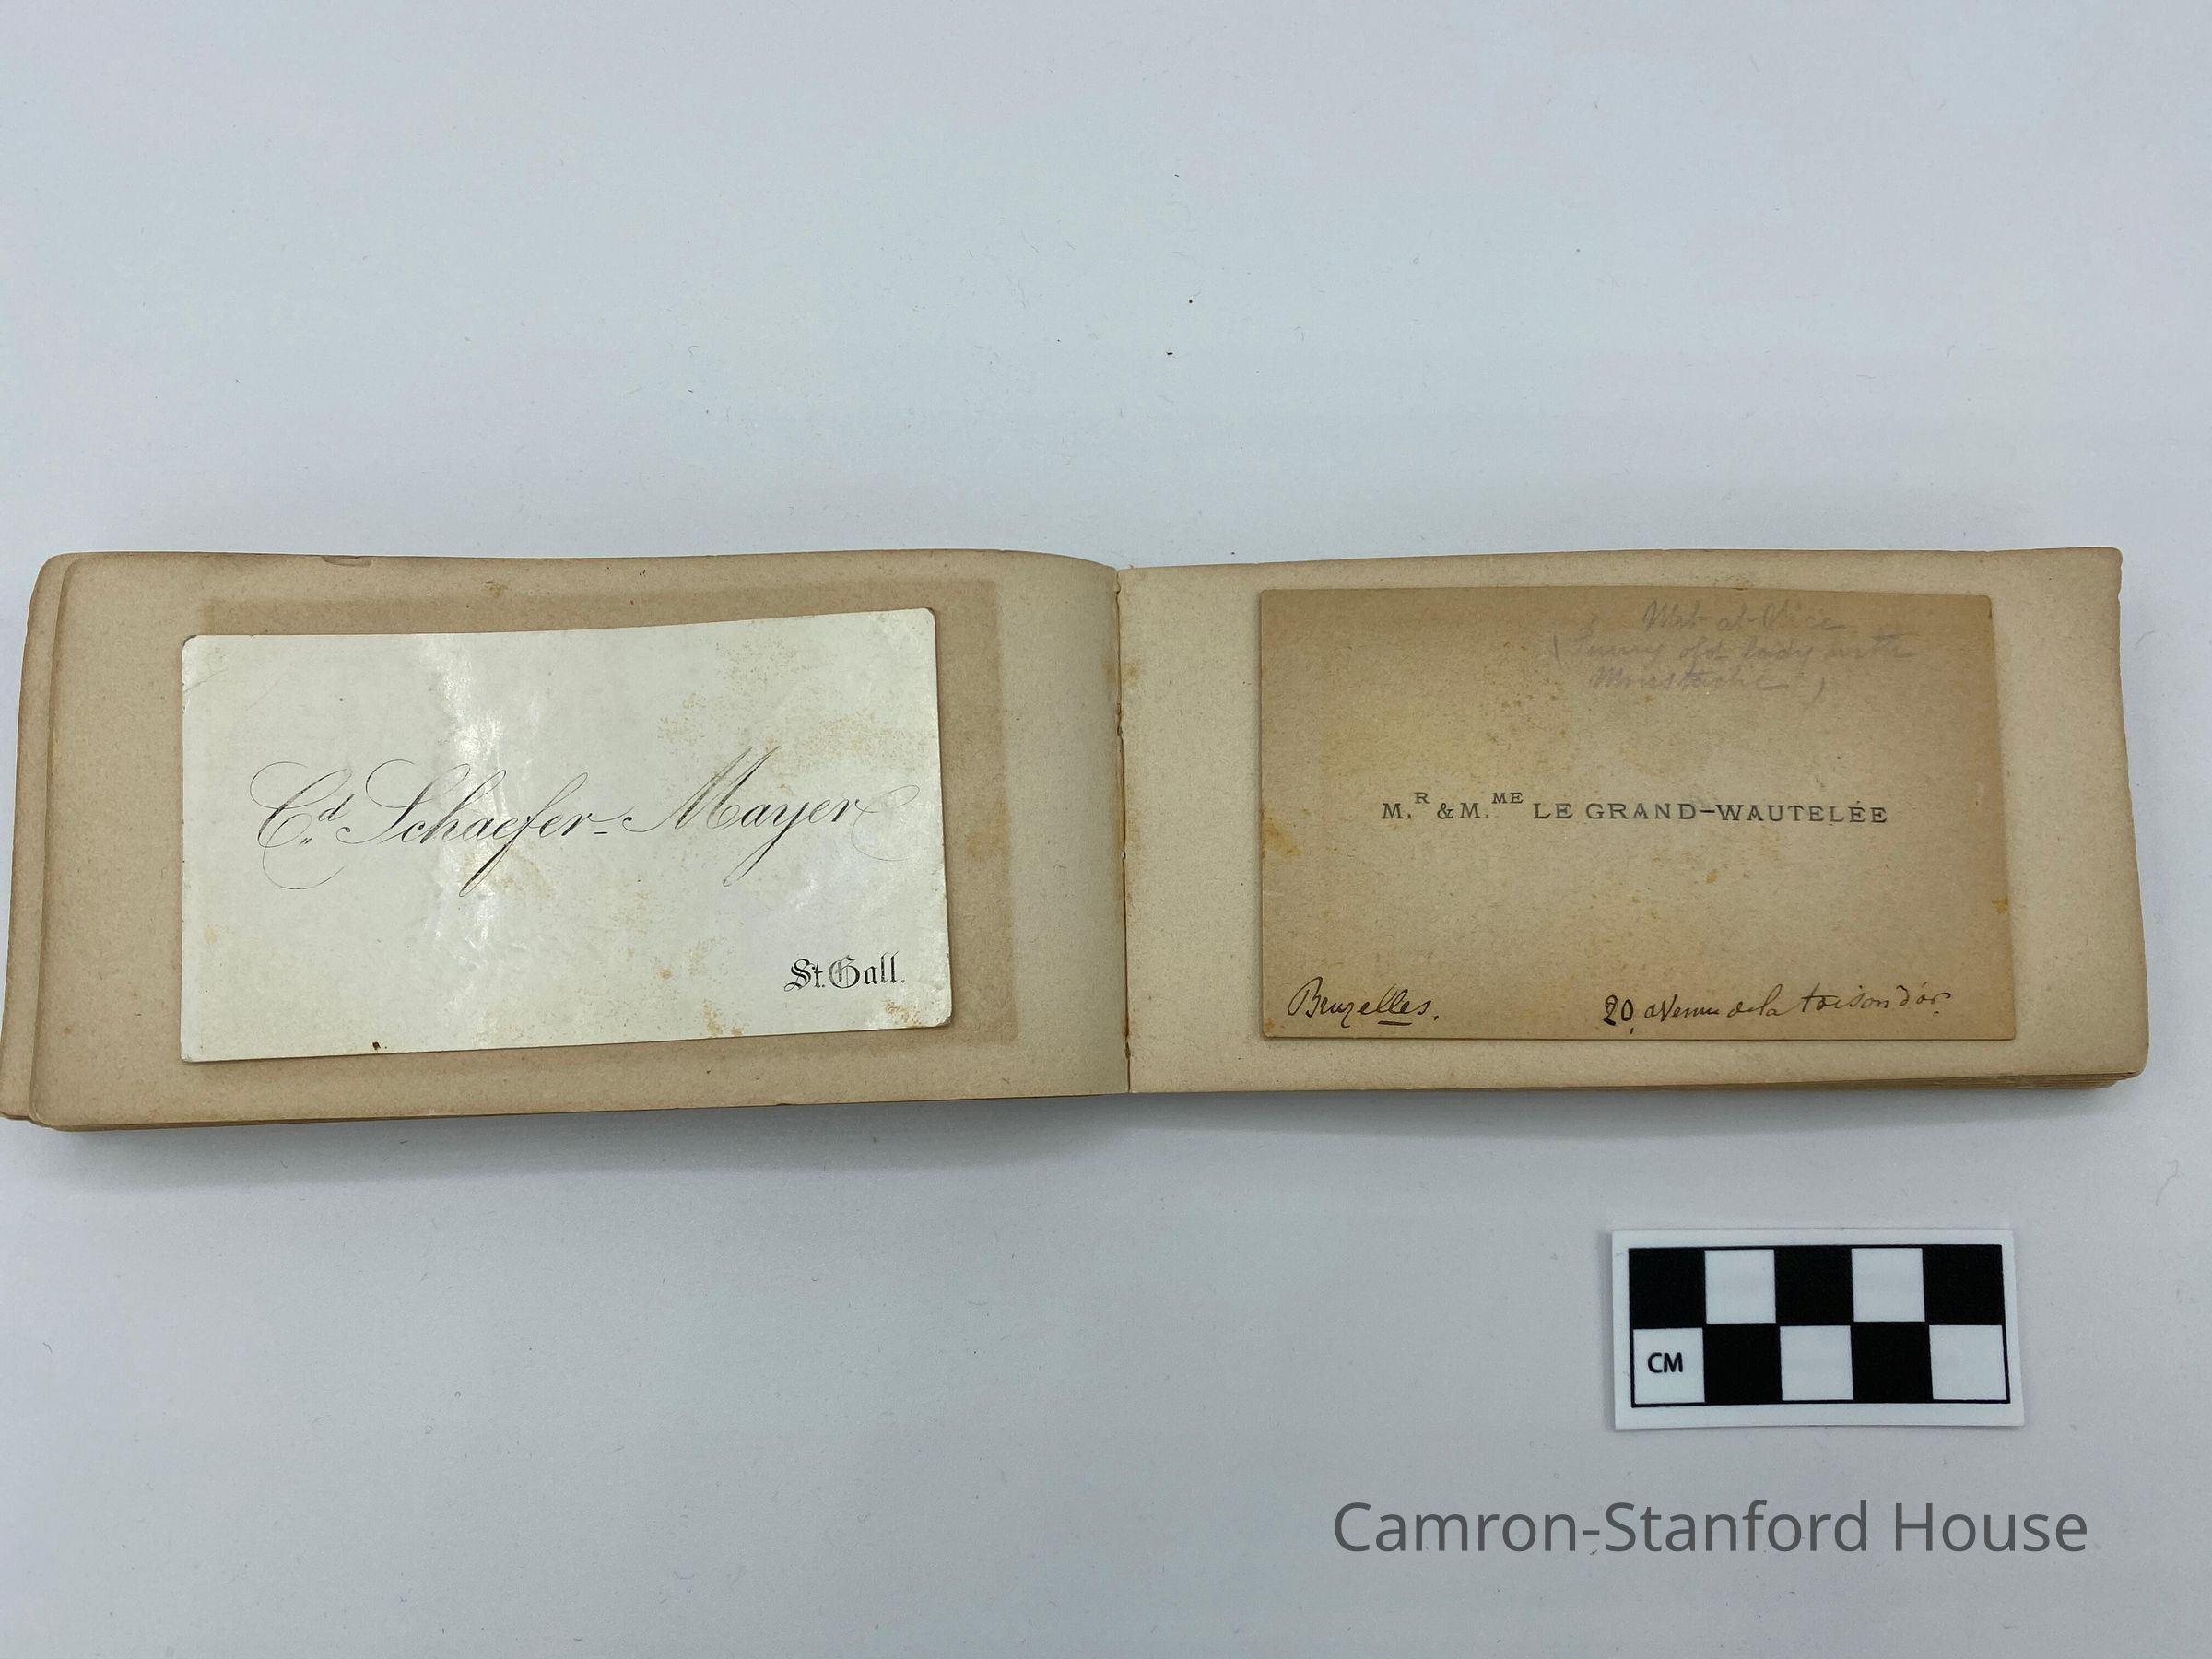 Cd. Schaefer-Mayer
St. Gall.
Met at Nice
(Funny old lady with
Moustache!)
M.R & M.ME LE GRAND-WAUTELÉE
Bruxelles.
20, avenue de la toison d'or.
CM
Camron-Stanford House